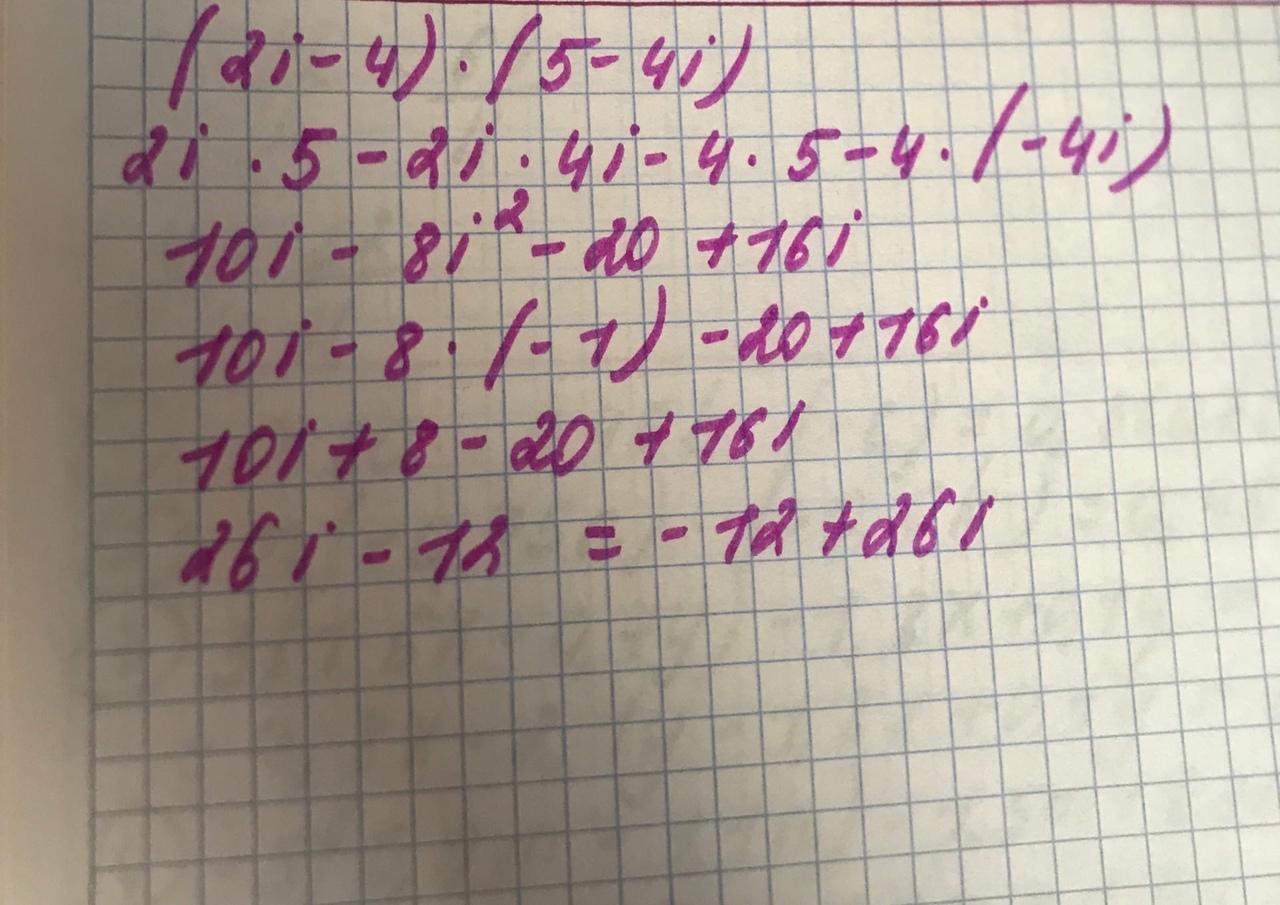 (2i - 4) · (5 - 4i)
2i · 5 - 2i · 4i - 4 · 5 - 4 · (-4i)
10i - 8i² - 20 + 16i
10i - 8 · (-1) - 20 + 16i
10i + 8 - 20 + 16i
26i - 12 = -12 + 26i